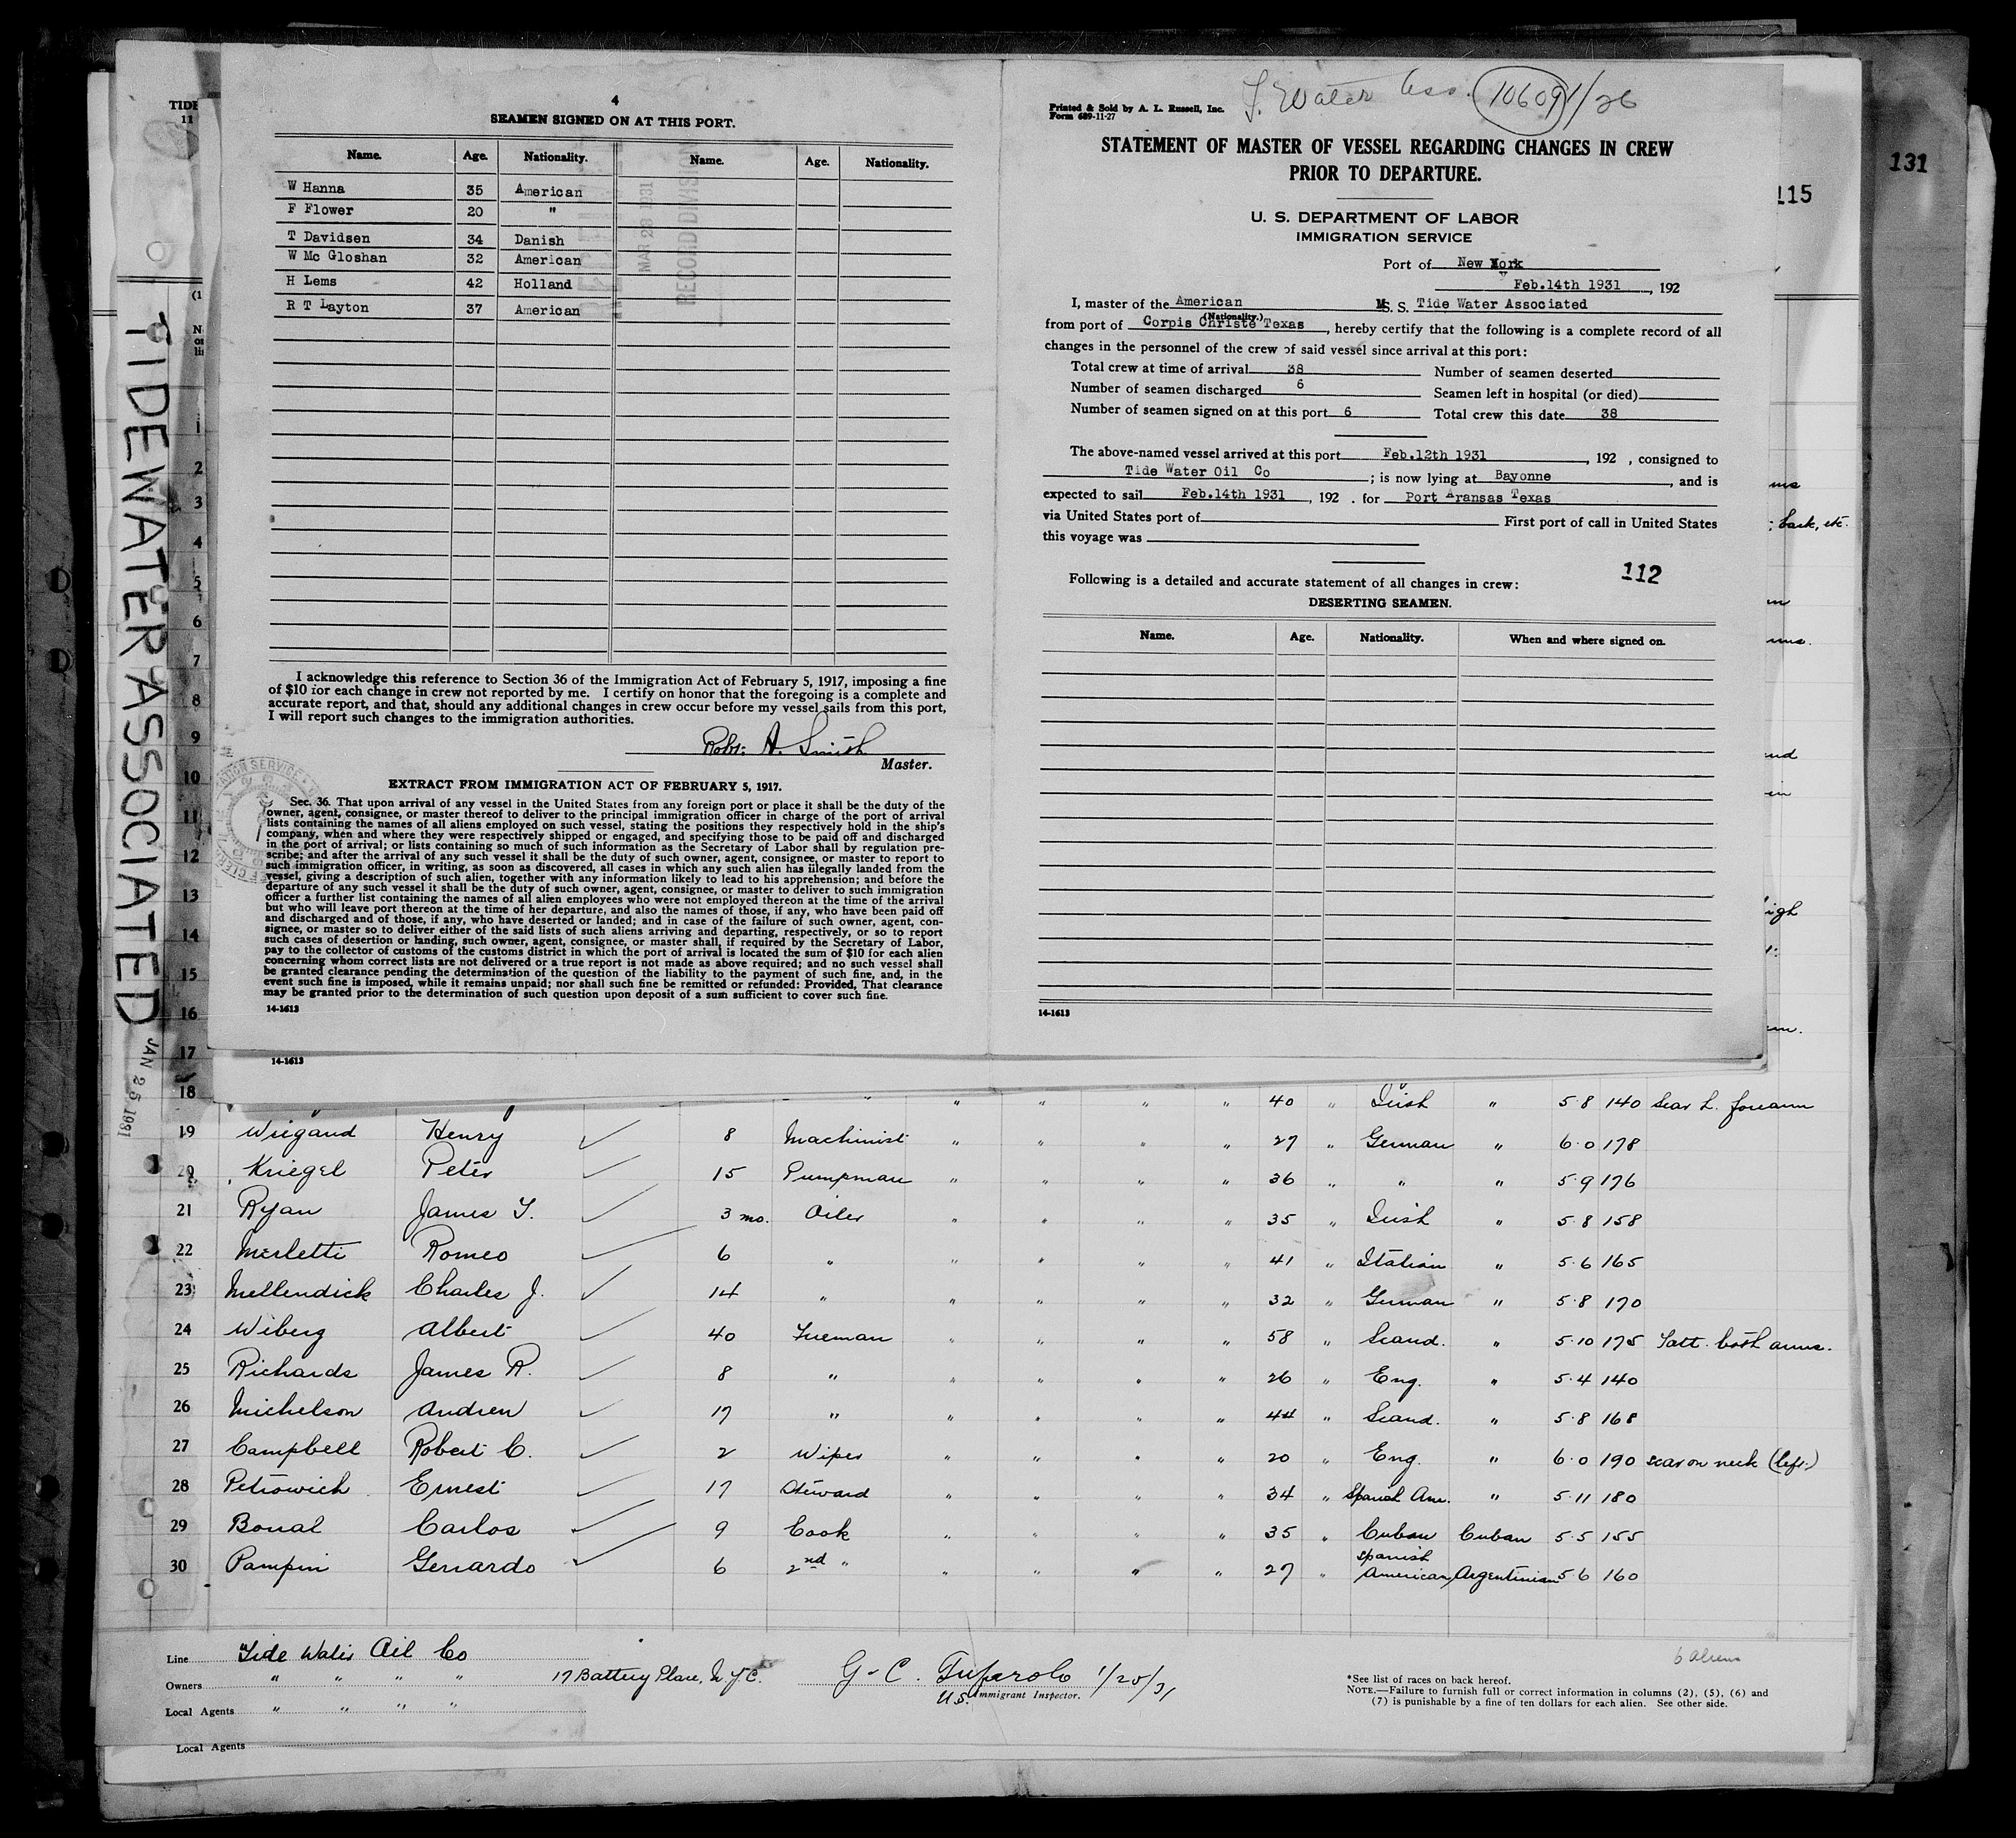 4
SEAMEN SIGNED ON AT THIS PORT.
Name. Age. Nationality. Name. Age. Nationality.
W Hanna 35 American
F Flower 20 "
T Davidsen 34 Danish
W Mc Gloshan 32 American
H Lems 42 Holland
R T Layton 37 American
MAR 28 1931
RECORD DIVISION
I acknowledge this reference to Section 36 of the Immigration Act of February 5, 1917, imposing a fine
of $10 for each change in crew not reported by me. I certify on honor that the foregoing is a complete and
accurate report, and that, should any additional changes in crew occur before my vessel sails from this port,
I will report such changes to the immigration authorities.
Robt. A. Smith
Master.
EXTRACT FROM IMMIGRATION ACT OF FEBRUARY 5, 1917.
Sec. 36. That upon arrival of any vessel in the United States from any foreign port or place it shall be the duty of the
owner, agent, consignee, or master thereof to deliver to the principal immigration officer in charge of the port of arrival
lists containing the names of all aliens employed on such vessel, stating the positions they respectively hold in the ship's
company, when and where they were respectively shipped or engaged, and specifying those to be paid off and discharged
in the port of arrival; or lists containing so much of such information as the Secretary of Labor shall by regulation pre-
scribe; and after the arrival of any such vessel it shall be the duty of such owner, agent, consignee, or master to report to
such immigration officer, in writing, as soon as discovered, all cases in which any such alien has illegally landed from the
vessel, giving a description of such alien, together with any information likely to lead to his apprehension; and before the
departure of any such vessel it shall be the duty of such owner, agent, consignee, or master to deliver to such immigration
officer a further list containing the names of all alien employees who were not employed thereon at the time of the arrival
but who will leave port thereon at the time of her departure, and also the names of those, if any, who have been paid off
and discharged and of those, if any, who have deserted or landed; and in case of the failure of such owner, agent, con-
signee, or master so to deliver either of the said lists of such aliens arriving and departing, respectively, or so to report
such cases of desertion or landing, such owner, agent, consignee, or master shall, if required by the Secretary of Labor,
pay to the collector of customs of the customs district in which the port of arrival is located the sum of $10 for each alien
concerning whom correct lists are not delivered or a true report is not made as above required; and no such vessel shall
be granted clearance pending the determination of the question of the liability to the payment of such fine, and, in the
event such fine is imposed, while it remains unpaid; nor shall such fine be remitted or refunded: Provided, That clearance
may be granted prior to the determination of such question upon deposit of a sum sufficient to cover such fine.
14-1613
14-1613
Printed & Sold by A. L. Russell, Inc.
Form 689-11-27
T. Water Ass. 10609 1/26
STATEMENT OF MASTER OF VESSEL REGARDING CHANGES IN CREW
PRIOR TO DEPARTURE.
U. S. DEPARTMENT OF LABOR
IMMIGRATION SERVICE
Port of New York
Feb.14th 1931, 192
I, master of the American M S. S. Tide Water Associated
(Nationality.)
from port of Corpis Christe Texas, hereby certify that the following is a complete record of all
changes in the personnel of the crew of said vessel since arrival at this port:
Total crew at time of arrival 38 Number of seamen deserted
Number of seamen discharged 6 Seamen left in hospital (or died)
Number of seamen signed on at this port 6 Total crew this date 38
The above-named vessel arrived at this port Feb.12th 1931, 192 , consigned to
Tide Water Oil Co ; is now lying at Bayonne, and is
expected to sail Feb.14th 1931, 192 . for Port Aransas Texas
via United States port of First port of call in United States
this voyage was
112
Following is a detailed and accurate statement of all changes in crew:
DESERTING SEAMEN.
Name. Age. Nationality. When and where signed on.
14-1613
131
115
TIDEWATER ASSOCIATED
JAN 25 1931
TIDE
11
2
3
4
5
6
7
8
9
10
11
12
13
14
15
16
17
18 " " " " " 40 " Irish " 5.8 140 Scar L. forearm
19 Wiegand Henry 8 Machinist " " " " 27 " German " 6.0 178
20 Kriegel Peter 15 Pumpman " " " " 36 " " " 5.9 176
21 Ryan James T. 3 mo. Oiler " " " " 35 " Irish " 5.8 158
22 Merletti Romeo 6 " " " " " 41 " Italian " 5.6 165
23 Mellendick Charles J. 14 " " " " " 32 " German " 5.8 170
24 Wiberg Albert 40 Fireman " " " " 58 " Scand. " 5.10 175 Tatt. both arms.
25 Richards James R. 8 " " " " " 26 " Eng. " 5.4 140
26 Michelson Andrew 17 " " " " " 44 " Scand. " 5.8 168
27 Campbell Robert C. 2 Wiper " " " " 20 " Eng. " 6.0 190 scar on neck (left.)
28 Petrowich Ernest 17 Steward " " " " 34 " Spanish Am. " 5.11 180
29 Bonal Carlos 9 Cook " " " " 35 " Cuban Cuban 5.5 155
30 Pampin Gerardo 6 2nd " " " " " 27 " Spanish American Argentinian 5.6 160
Line Tide Water Oil Co
Owners " " " " 17 Battery Place, N.Y.C.
Local Agents " " " "
Local Agents
U.S. Immigrant Inspector. 1/25/31
6 Aliens
*See list of races on back hereof.
NOTE.—Failure to furnish full or correct information in columns (2), (5), (6) and
(7) is punishable by a fine of ten dollars for each alien. See other side.